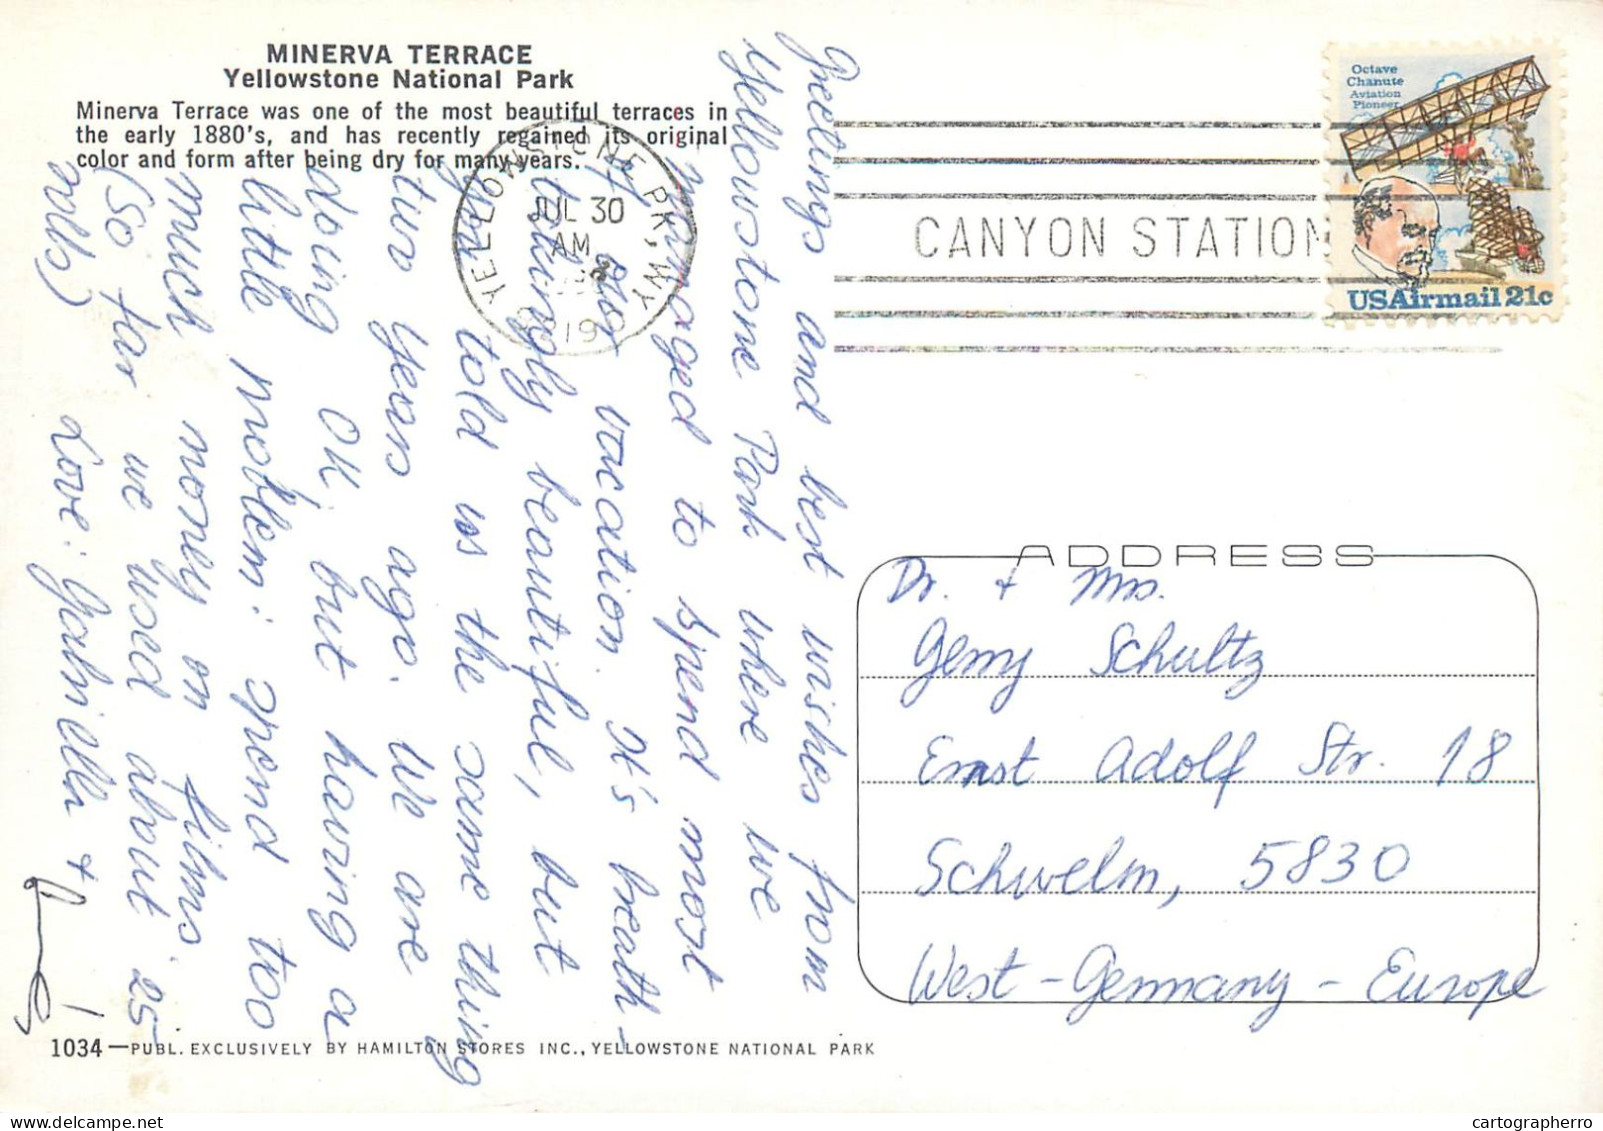 MINERVA TERRACE
Yellowstone National Park
Minerva Terrace was one of the most beautiful terraces in
the early 1880's, and has recently regained its original
color and form after being dry for many years.
Greetings and best wishes from
Yellowstone Park where we
managed to spend most
of our vacation. It's breath-
takingly beautiful, but
you told us the same thing
two years ago. We are
doing OK, but having a
little problem: spend too
much money on films.
(So far we used about 25
rolls) Love: Gabriella +
YELLOWSTONE PK, WY
JUL 30
AM
8219
CANYON STATION
Octave
Chanute
Aviation
Pioneer
USAirmail 21c
ADDRESS
Dr. + Mrs.
Gerry Schultz
Ernst Adolf Str. 18
Schwelm, 5830
West-Germany-Europe
1034—PUBL. EXCLUSIVELY BY HAMILTON STORES INC., YELLOWSTONE NATIONAL PARK
cartographerro